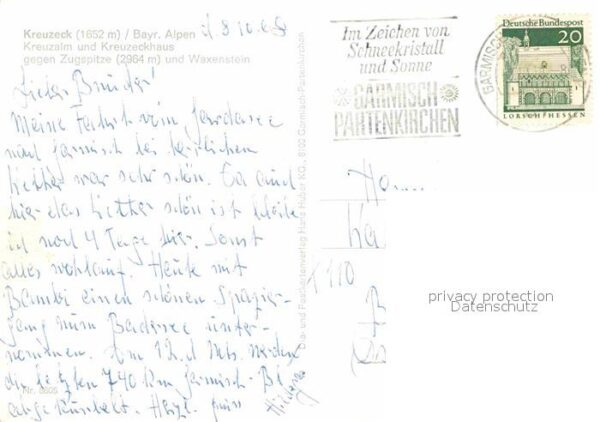 Kreuzeck (1652 m) / Bayr. Alpen
Kreuzalm und Kreuzeckhaus
gegen Zugspitze (2964 m) und Waxenstein
Lieber Bruder!
Meine Fahrt vom Gardasee
nach Garmisch bei herrlichem
Wetter war sehr schön. Da auch
hier das Wetter schön ist bleibe
ich noch 4 Tage hier. Sonst
alles wohlauf. Heute mit
Bambi einen schönen Spazier-
gang zum Badersee unter-
nommen. Am 12.d Mts. werden
die letzten 740 km Garmisch-
abgekurbelt. Herzl.
Nr. 8805
Dia- und Postkartenverlag Hans Huber KG., 8100 Garmisch-Partenkirchen
Im Zeichen von
Schneekristall
und Sonne
GARMISCH
PARTENKIRCHEN
GARMISCH
Deutsche Bundespost
20
LORSCH/HESSEN
privacy protection
Datenschutz